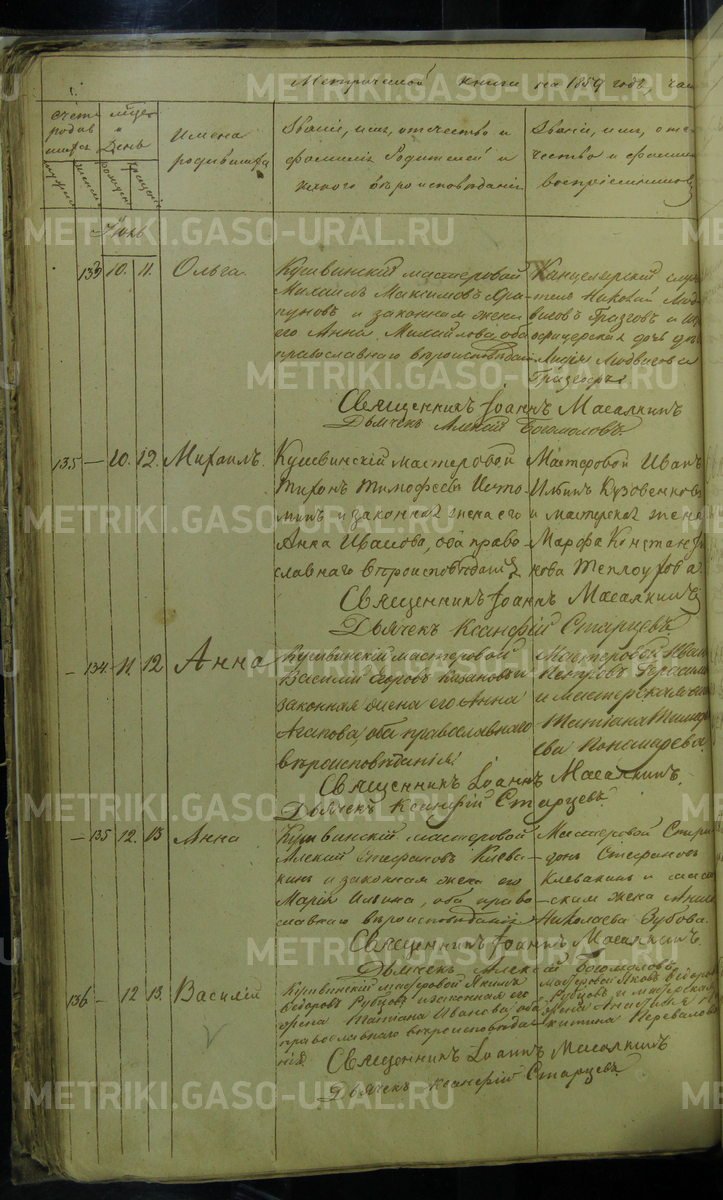 Метрической книги на 1859 годъ, час
Счетъ родив шихся
Мѣсяцъ и День
Имена родившихся
Званіе, имя, отчество и фамилія Родителей и какого вѣроисповѣданія
Званіе, имя, отче чество и фамилія воспріемниковъ
рожденія
крещенія
Іюнь
133 10. 11. Ольга.
Кушвинскій мастеровой
Михаилъ Максимовъ
и законная жена
его Анна Михайлова, оба
православнаго вѣроисповѣданія
Канцелярскій служи
тель Николай
и
офицерская дочь
Лидія
Священникъ Іоаннъ Масалкинъ
Дьячекъ Алексій Богомоловъ.
135 — 10. 12. Михаилъ.
Кушвинскій мастеровой
Тихонъ Тимофеевъ Исто
минъ и законная жена его
Анна Иванова, оба право
славнаго вѣроисповѣданія
Мастеровой Иванъ
Ильинъ Кузовенковъ
и мастерская жена
Марфа Констан
нова Теплоухова
Священникъ Іоаннъ Масалкинъ
Дьячекъ Ксанфій Старцевъ
— 134 11. 12 Анна
Кушвинскій мастеровой
Василій Казановъ и
законная жена его Анна
Агапова, оба православнаго
вѣроисповѣданія
Мастеровой Иван
Петровъ Герасим
и мастерская жена
Татіана Тимоф
ева Пономарева.
Священникъ Іоаннъ Масалкинъ.
Дьячекъ Ксанфій Старцевъ
— 135 12. 13 Анна
Кушвинскій мастеровой
Алексій Стефановъ Клева
кинъ и законная жена его
Марія Ильина, оба право
славнаго вѣроисповѣданія
Мастеровой Спири
донъ Стефановъ
Клевакинъ и масте
ская жена Анна
Николаева Зубова.
Священникъ Іоаннъ Масалкинъ.
Дьячекъ Алексій Богомоловъ
136 — 12 13. Василій
Кушвинскій мастеровой Якимъ
Ѳедоровъ Рубцовъ и законная его
жена Татіана Иванова оба
православнаго вѣроисповѣда
нія
мастеровой Яковъ Ѳедоров
Рубцовъ и мастерская
жена Анастасія Н
китина Перевалова
Священникъ Іоаннъ Масалкинъ
Дьячекъ Ксанфій Старцевъ.
METRIKI.GASO-URAL.RU